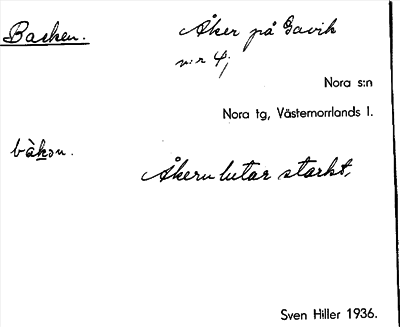 Backen. Åker på Gavik
n:r 4;
Nora s:n
Nora tg, Västernorrlands l.
bàkən.
Åkern lutar starkt.
Sven Hiller 1936.